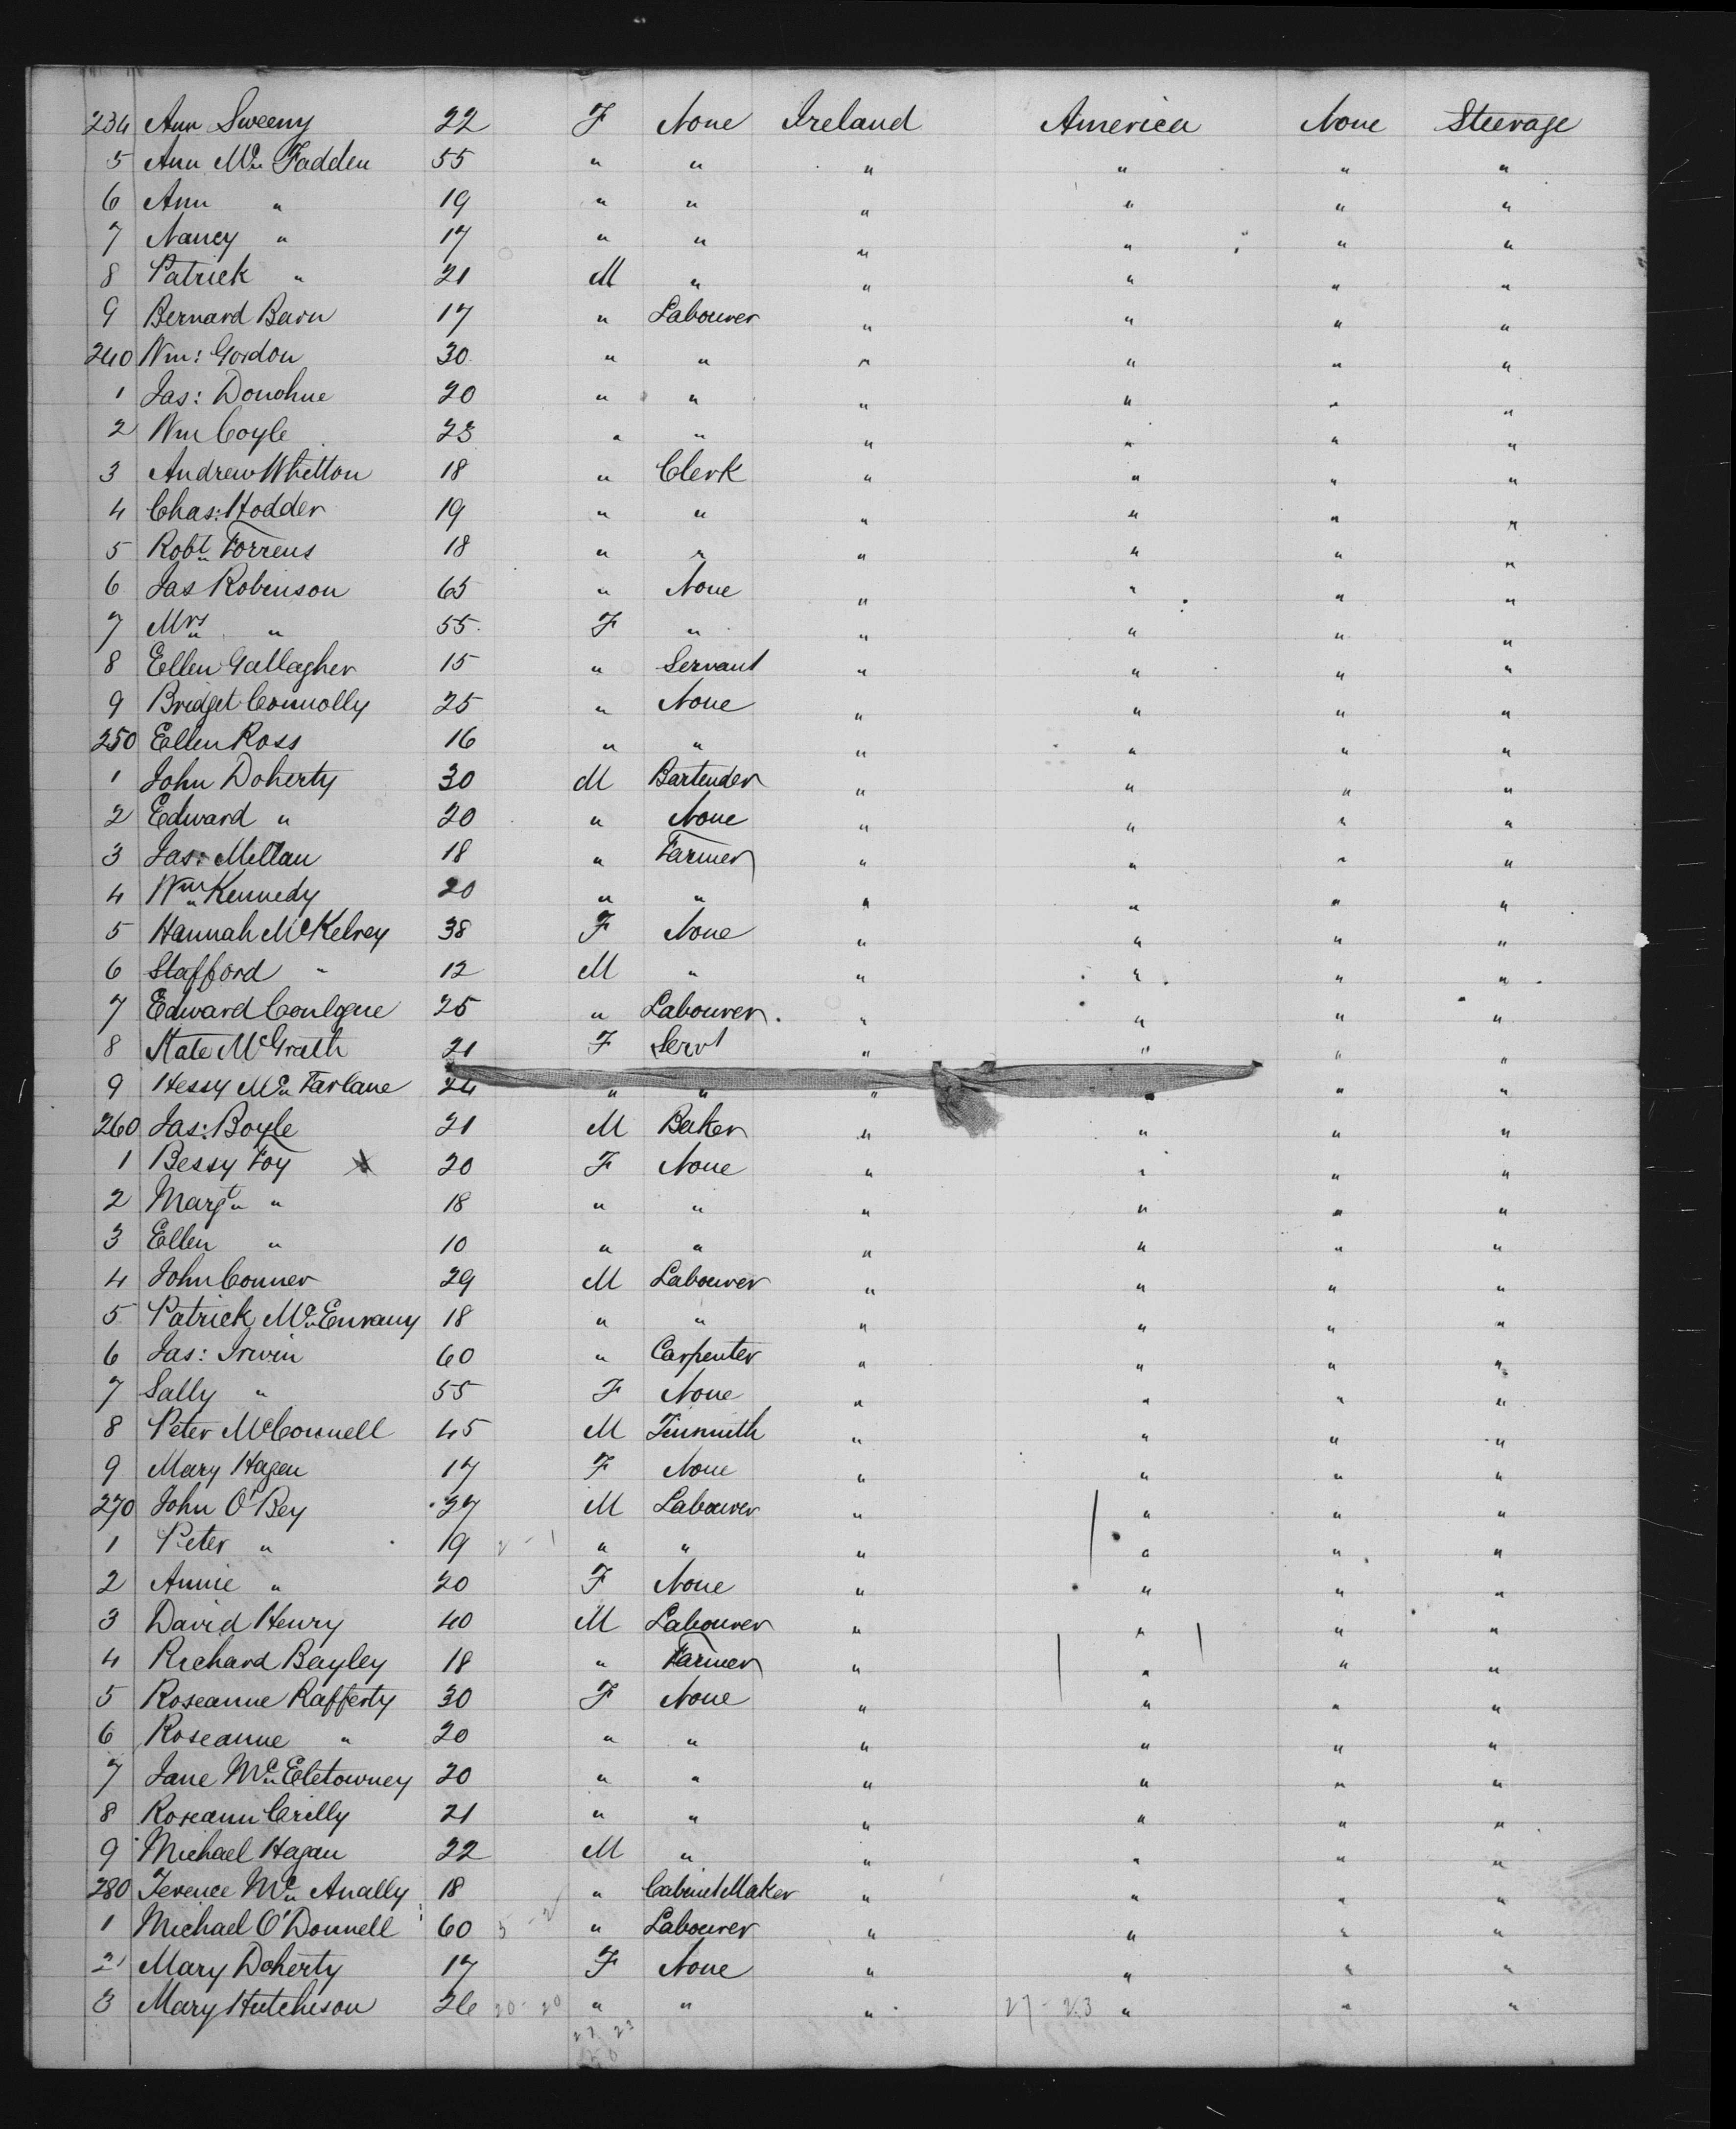 234 Ann Sweeny 22 F None Ireland America None Steerage
5 Ann Mc Fadden 55 " " " " " "
6 Ann " 19 " " " " " "
7 Nancy " 17 " " " " " "
8 Patrick " 21 M " " " " "
9 Bernard 17 " Labourer " " " "
240 Wm: Gordon 30 " " " " " "
1 Jas: Donohue 20 " " " " " "
2 Wm Coyle 23 " " " " " "
3 Andrew Whetton 18 " Clerk " " " "
4 Chas: Hodder 19 " " " " " "
5 Robt Torrens 18 " " " " " "
6 Jas Robinson 65 " None " " " "
7 Mrs " 55 F " " " " "
8 Ellen Gallagher 15 " Servant " " " "
9 Bridget Connolly 25 " None " " " "
250 Ellen Ross 16 " " " " " "
1 John Doherty 30 M Bartender " " " "
2 Edward " 20 " None " " " "
3 Jas: Mellan 18 " Farmer " " " "
4 Wm Kennedy 20 " " " " " "
5 Hannah McKelvey 38 F None " " " "
6 Stafford " 12 M " " " " "
7 Edward Conlogue 25 " Labourer " " " "
8 Kate McGrath 21 F Servt " " " "
9 Hessy Mc Farlane 24 " " " " " "
260 Jas: Boyle 21 M Baker " " " "
1 Bessy Foy X 20 F None " " " "
2 Margt " 18 " " " " " "
3 Ellen " 10 " " " " " "
4 John Conner 29 M Labourer " " " "
5 Patrick McEnvany 18 " " " " " "
6 Jas: Irwin 60 " Carpenter " " " "
7 Sally " 55 F None " " " "
8 Peter McConnell 45 M Tinsmith " " " "
9 Mary Hagen 17 F None " " " "
270 John O'Bey 27 M Labourer " " " "
1 Peter " 19 " " " " " "
2 Annie " 20 F None " " " "
3 David Henry 40 M Labourer " " " "
4 Richard Bayley 18 " Farmer " " " "
5 Roseanne Rafferty 30 F None " " " "
6 Roseanne " 20 " " " " " "
7 Jane McEletowney 20 " " " " " "
8 Roseann Crilly 21 " " " " " "
9 Michael Hagan 22 M " " " " "
280 Terence Mc Anally 18 " Cabinet Maker " " " "
1 Michael O'Donnell 60 " Labourer " " " "
2 Mary Doherty 17 F None " " " "
3 Mary Hutchison 26 20-20 " " " 27-23 " " "
27 23